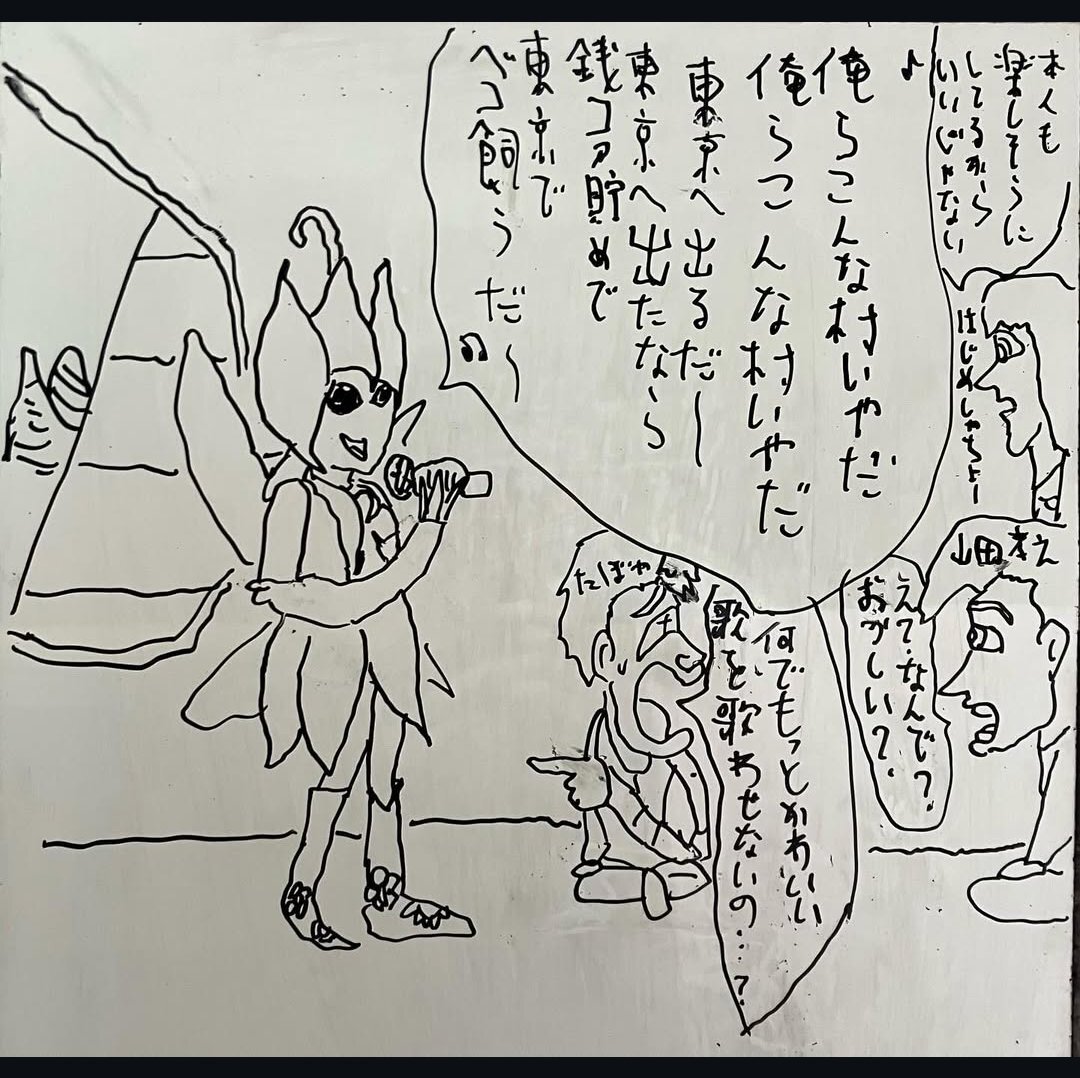 本人も
楽しそうに
してるから
いいじゃない
はじめしゃちょー
♪
俺らこんな村いやだ
俺らこんな村いやだ
東京へ出るだ〜
東京へ出たなら
銭コァ貯めで
東京で
ベコ飼うだ〜
♪
山田孝之
え?なんで?
おかしい?
たばやん
何でもっとかわいい
歌を歌わせないの…?